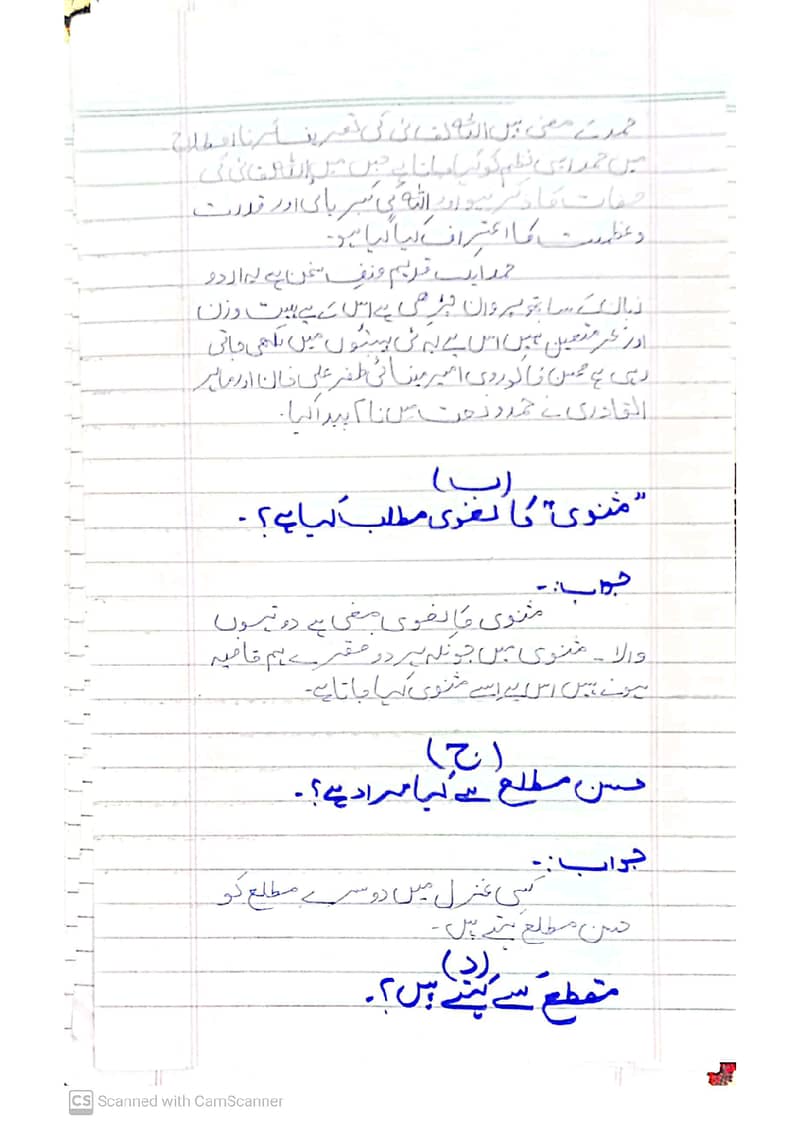 حمد کے معنی ہیں اللہ تعالیٰ کی تعریف کرنا اصطلاح
میں حمد ایسی نظم کو کہا جاتا ہے جس میں اللہ تعالیٰ کی
صفات کا ذکر ہو اور اللہ کی کبریائی اور قدرت
و عظمت کا اعتراف کیا گیا ہو۔
حمد ایک قدیم صنفِ سخن ہے یہ اردو
زبان کے ساتھ پروان چڑھی ہے اس کے ہیت وزن
اور بحر متعین نہیں اس لیے یہ کئی ہیتوں میں لکھی جاتی
رہی ہے محسن کاکوروی امیر مینائی ظفر علی خان اور ماہر
القادری نے حمد و نعت میں نام پیدا کیا۔
(ب)
"مثنوی" کا لغوی مطلب کیا ہے؟۔
جواب:۔
مثنوی کا لغوی معنی ہے دو
والا۔ مثنوی میں چونکہ ہر دو مصرعے ہم قافیہ
ہوتے ہیں اس لیے اسے مثنوی کہا جاتا ہے۔
(ج)
حسن مطلع سے کیا مراد ہے؟۔
جواب:۔
کسی غزل میں دوسرے مطلع کو
حسن مطلع کہتے ہیں۔
(د)
مقطع کسے کہتے ہیں؟۔
CS Scanned with CamScanner